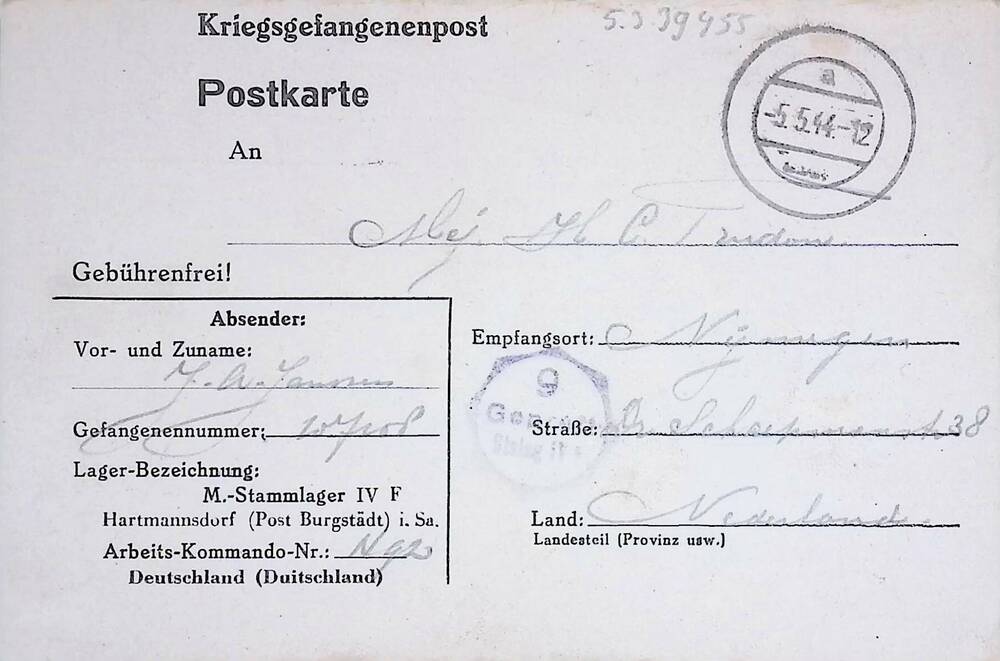 Kriegsgefangenenpost
5.3 39455
Postkarte
a
-5.5.44-12
An
Mej. H C Trudon
Gebührenfrei!
Absender:
Vor- und Zuname:
J. A. Janssen
Gefangenennummer:
Lager-Bezeichnung:
M.-Stammlager IV F
Hartmannsdorf (Post Burgstädt) i. Sa.
Arbeits-Kommando-Nr.: N 92
Deutschland (Duitschland)
Empfangsort: Nijmegen
9
Geprüft
Stalag
Straße: Dr. Schaepmanstr 38
Land: Nederland
Landesteil (Provinz usw.)